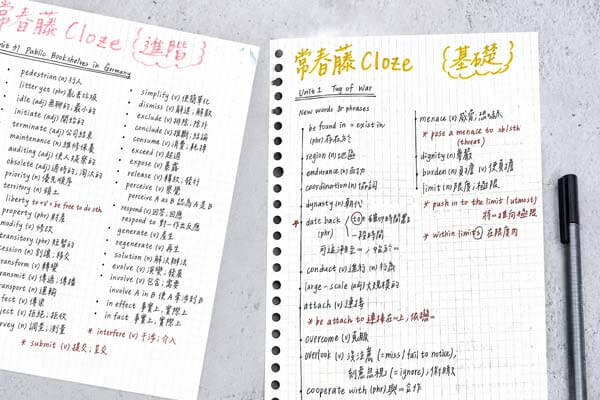 常春藤 Cloze {進階}
Unit 41 Public Bookshelves in Germany
pedestrian (n) 行人
litter get (phr) 亂丟垃圾
idle (adj) 無聊的;
initiate (adj) 開始的
terminate (adj) 公司結束
maintenance (n) 維修保養
auditing (adj) 使人疑察的
obsolete (adj) 過時的; 淘汰的
priority (n) 優先順序
territory (n) 領土
liberty to v = be free to
property (phr) 財產
modify (v) 修改
transitory (phr) 短暫的
cession (n) 割讓; 移交
transform (v) 轉變
transmit (v) 傳遞; 傳播
transport (n) 運輸
fect (v) 傳染
ject (v) 拒絕; 拒收
rvey (n) 調查; 測量
* submit (v) 提交; 呈交
simplify (v) 使簡單化
dismiss (v) 解送; 解散
exclude (v) 排除; 除外
conclude (v) 推斷; 結論
consume (v) 消費; 耗掉
exceed (v) 超過
expose (v) 暴露
release (v) 釋放; 發行
perceive (v) 察覺
perceive A as B 認為 A 是 B
respond (v) 回答; 回應
respond to 對…作出反應
generate (v) 產生
regenerate (v) 再生
solution (n) 解決辦法
evolve (v) 演變; 發展
involve (v) 包含; 需要
involve A in B 使 A 牽涉到 B
in effect 事實上, 實際上
in fact 事實上, 實際上
* interfere (v) 干涉; 介入
常春藤 Cloze {基礎}
Unit 1 Tug of War
New words & phrases
be found in = exist in
(phr) 存在於
region (n) 地區
endurance (n) 耐力
coordination (n) 協調
dynasty (n) 朝代
* date back to + 確切時間點
(phr) 一段時間
可追溯至…, 始於…
conduct (v) 進行 (n) 行為
large-scale (adj) 大規模的
attach (v) 連接
* be attach to 連接在…上, 依戀…
overcome (v) 克服
overlook (v) 沒注意 (= miss / fail to notice),
刻意忽視 (= ignore), 俯瞰
cooperate with (phr) 與…合作
menace (v) 威脅; 恐嚇
* pose a menace to sb/sth
(threat)
dignity (n) 尊嚴
burden (n) 負擔 (v) 使負擔
limit (n) 限度; 極限
* push … to the limit (utmost)
將…推向極限
* within limits 在限度內